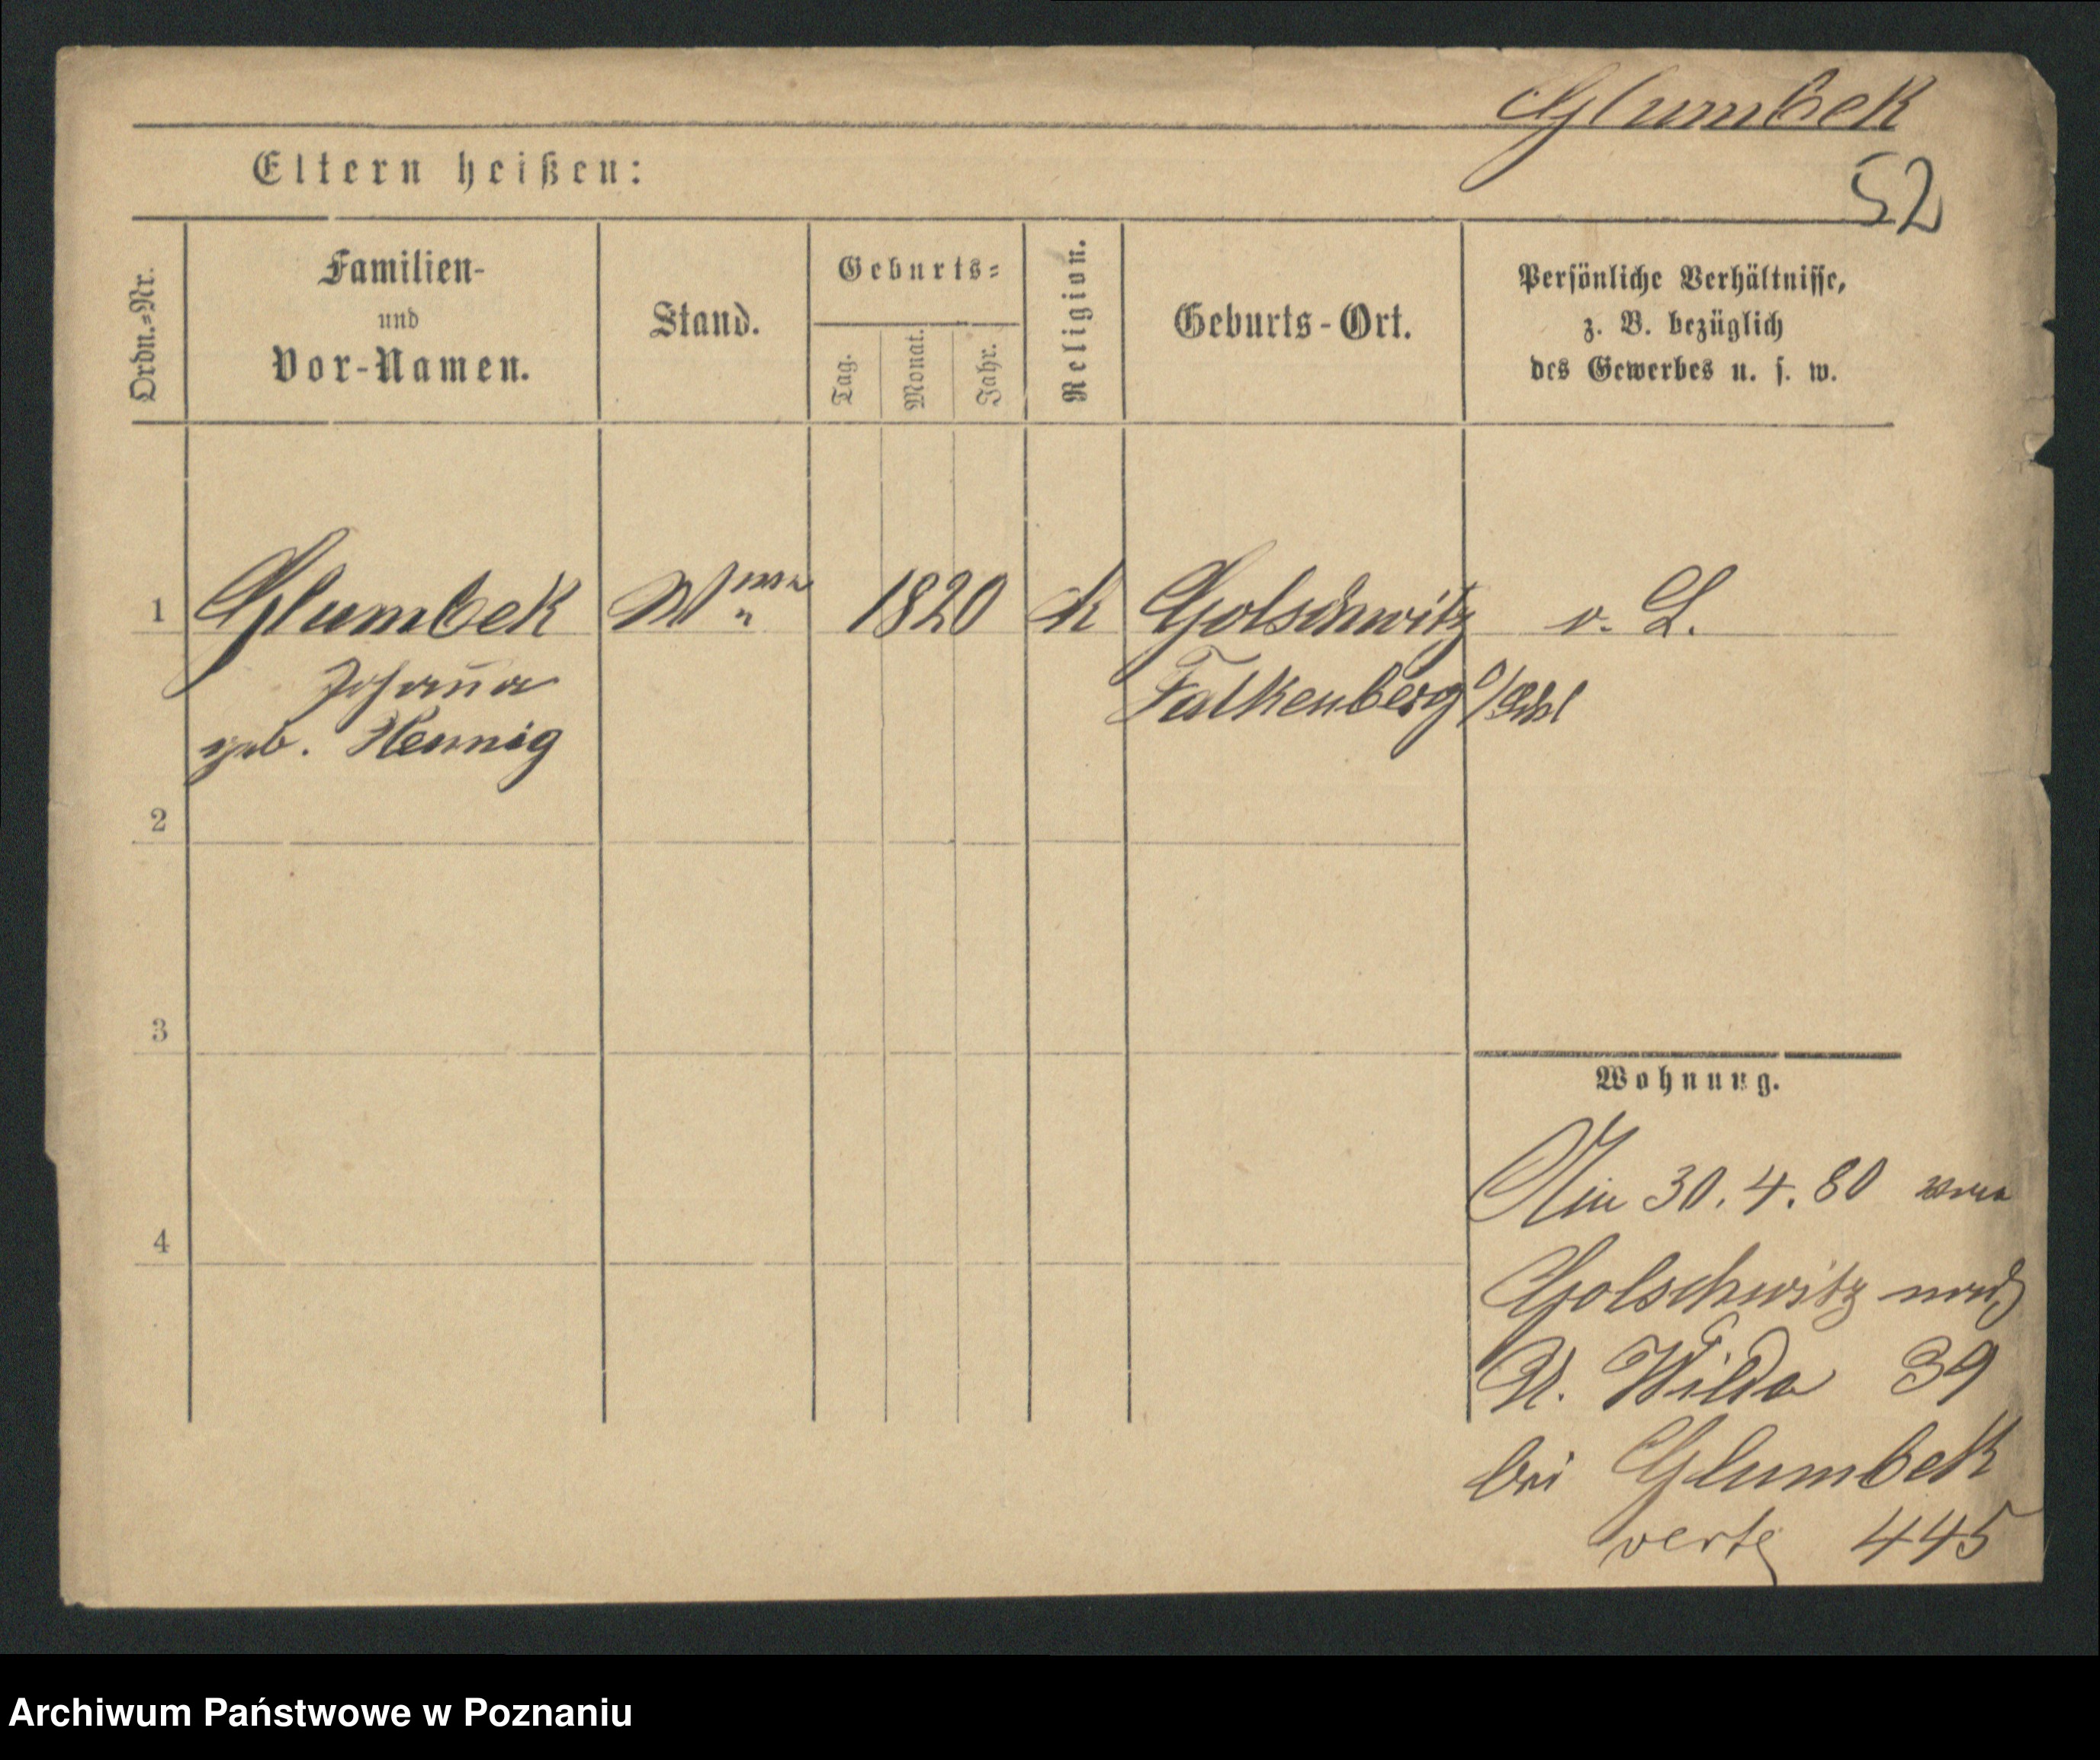 Glumbek
Eltern heißen:
52
Ordn.-Nr.
Familien-
und
Vor-Namen.
Stand.
Geburts-
Tag.
Monat.
Jahr.
Religion.
Geburts-Ort.
Persönliche Verhältnisse,
z. B. bezüglich
des Gewerbes u. s. w.
1 Glumbek 1820 k Golschwitz v. L.
Johan̅a Falkenberg O/Schl
geb. Hennig
2
3
Wohnung.
30. 4. 80 von
4
Golschwitz nach
U. Wilda 39
bei Glumbek
verte 445
Archiwum Państwowe w Poznaniu